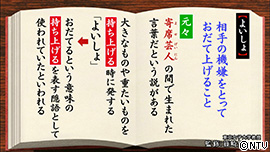 【よいしょ】
相手の機嫌をとって
おだて上げること
元々
寄席芸人の間で生まれた
言葉だという説がある
大きなものや重たいものを
持ち上げる時に発する
「よいしょ」
おだてるという意味の
持ち上げるを表す隠語として
使われていたといわれる
©NTV